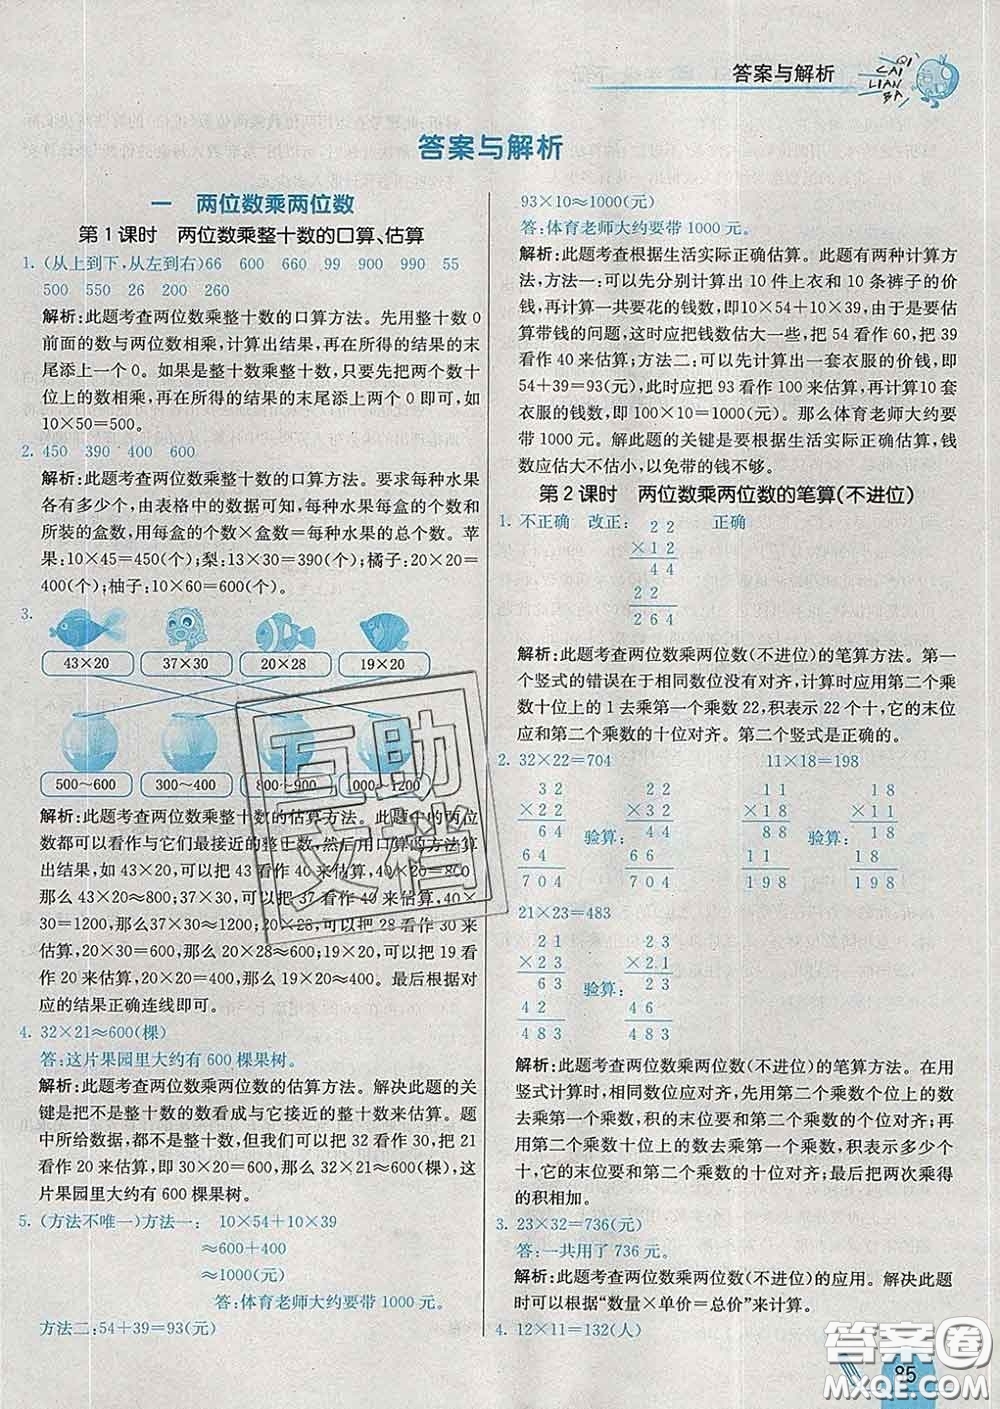 答案与解析
QI
CAI
LIAN
BA
答案与解析
一 两位数乘两位数
第1课时 两位数乘整十数的口算、估算
1. (从上到下,从左到右)66 600 660 99 900 990 55
500 550 26 200 260
解析:此题考查两位数乘整十数的口算方法。先用整十数0
前面的数与两位数相乘，计算出结果，再在所得的结果的末
尾添上一个0。如果是整十数乘整十数，只要先把两个数十
位上的数相乘，再在所得的结果的末尾添上两个0即可，如
10×50=500。
2. 450 390 400 600
解析:此题考查两位数乘整十数的口算方法。要求每种水果
各有多少个，由表格中的数据可知，每种水果每盒的个数和
所装的盒数，用每盒的个数×盒数=每种水果的总个数。苹
果:10×45=450(个);梨:13×30=390(个);橘子:20×20=
400(个);柚子:10×60=600(个)。
3.
43×20 37×30 20×28 19×20
500~600 300~400 800~900 1000~1200
解析:此题考查两位数乘整十数的估算方法。此题中的两位
数都可以看作与它们最接近的整十数，然后用口算的方法算
出结果，如43×20，可以把43看作40来估算，40×20=
800，那么43×20≈800;37×30，可以把37看作40来估算,40×
30=1200，那么37×30≈1200;20×28，可以把28看作30来
估算,20×30=600，那么20×28≈600;19×20，可以把19看
作20来估算，20×20=400，那么19×20≈400。最后根据对
应的结果正确连线即可。
4. 32×21≈600(棵)
答:这片果园里大约有600棵果树。
解析:此题考查两位数乘两位数的估算方法。解决此题的关
键是把不是整十数的数看成与它接近的整十数来估算。题
中所给数据，都不是整十数，估算时，可以把32看作30，把21
看作20来估算，即30×20=600，那么32×21≈600(棵)，这
片果园里大约有600棵果树。
5. (方法不唯一)方法一: 10×54+10×39
≈600+400
≈1000(元)
答:体育老师大约要带1000元。
方法二:54+39=93(元)
93×10≈1000(元)
答:体育老师大约要带1000元。
解析:此题考查根据生活实际正确估算。此题有两种计算方
法，方法一:可以先分别计算出10件上衣和10条裤子的价
钱，再计算一共要花的钱数，即10×54+10×39，由于是要估
算带钱的问题，这时应把钱数估大一些，把54看作60，把39
看作40来估算;方法二:可以先计算出一套衣服的价钱，即
54+39=93(元)，此时应把93看作100来估算，再计算10套
衣服的钱数，即100×10=1000(元)。那么体育老师大约要
带1000元。解此题的关键是要根据生活实际正确估算，钱
数应估大不估小，以免带的钱不够。
第2课时 两位数乘两位数的笔算(不进位)
1. 不正确 改正: 22 正确
×12
44
22
264
解析:此题考查两位数乘两位数(不进位)的笔算方法。第一
个竖式的错误在于相同数位没有对齐，计算时应用第二个乘
数十位上的1去乘第一个乘数22，积表示22个十，它的末位
应和第二个乘数的十位对齐。第二个竖式是正确的。
2. 32×22=704 11×18=198
32 22 11 18
×22 ×32 ×18 ×11
64 验算: 44 88 验算: 18
64 66 11 18
704 704 198 198
21×23=483
21 23
×23 ×21
63 验算: 23
42 46
483 483
解析:此题考查两位数乘两位数(不进位)的笔算方法。在用
竖式计算时，相同数位应对齐，先用第二个乘数个位上的数
去乘第一个乘数，积的末位要和第二个乘数的个位对齐;再
用第二个乘数十位上的数去乘第一个乘数，积表示多少个
十，它的末位要和第二个乘数的十位对齐，最后把两次乘得
的积相加。
3. 23×32=736(元)
答:一共用了736元。
解析:此题考查两位数乘两位数(不进位)的应用。解决此题
可以根据“数量×单价=总价”来计算。
4. 12×11=132(人)
85
互助
文档
答案圈
MXQE.COM